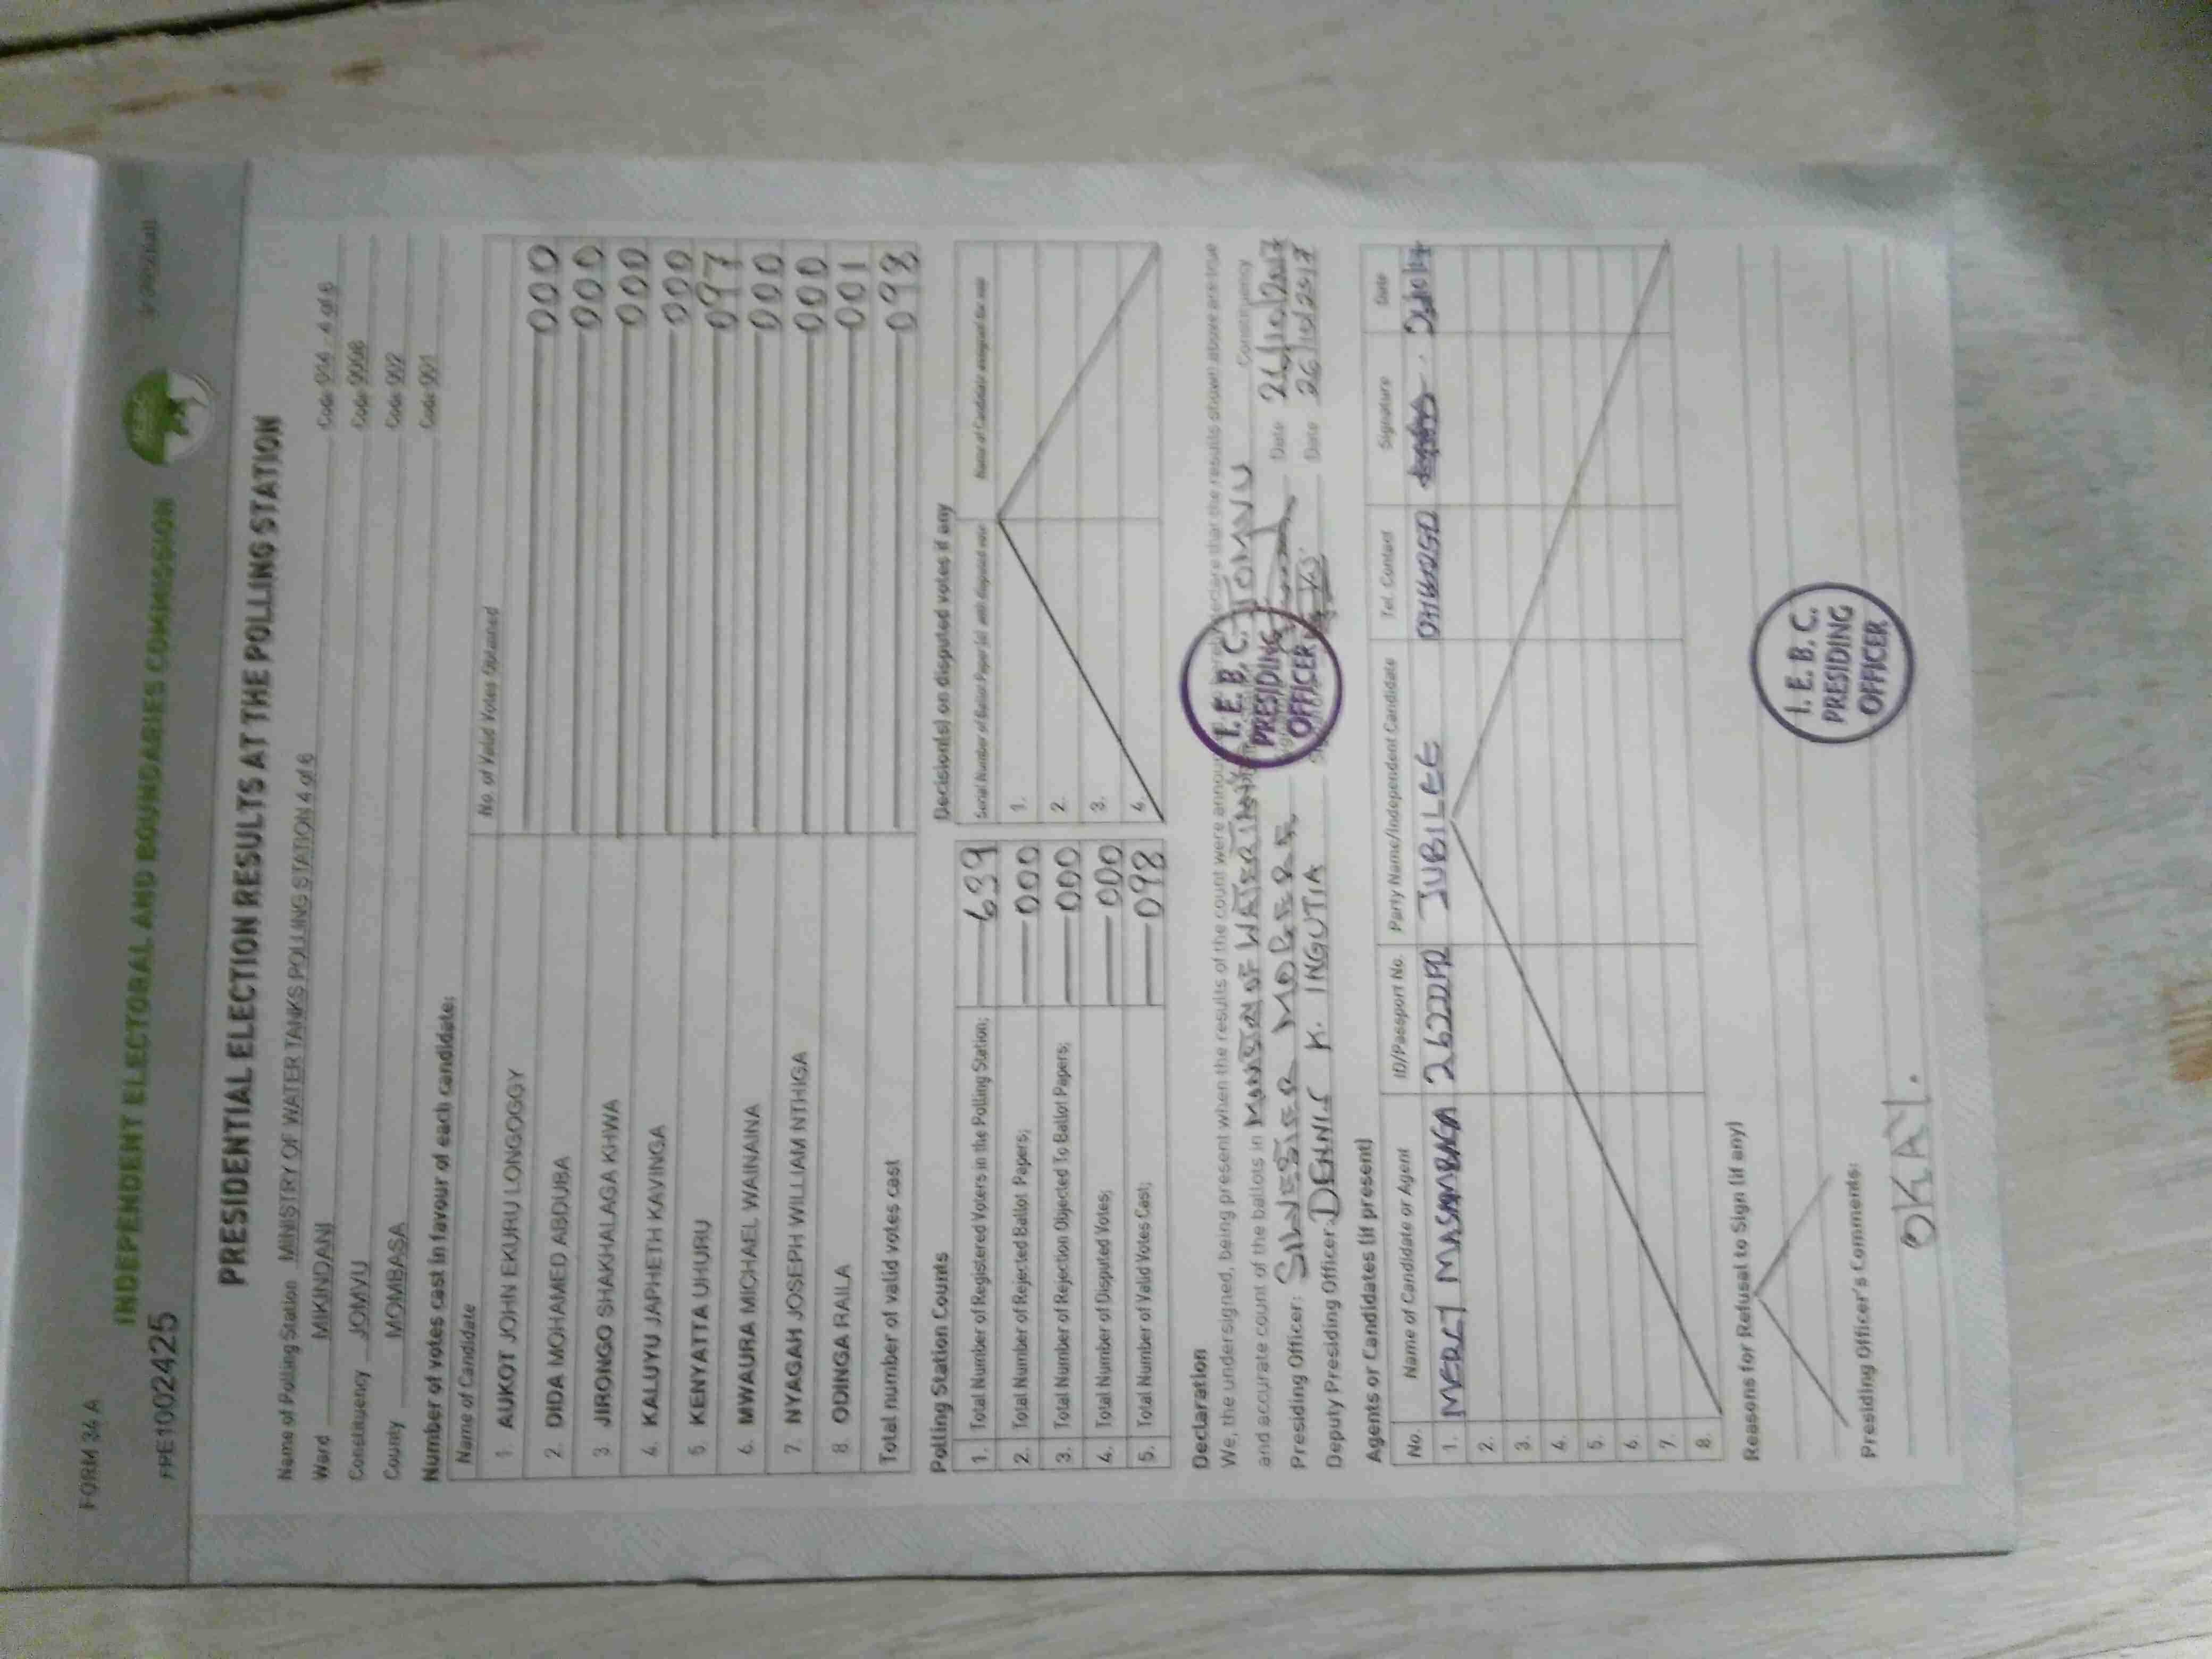 FORM 34 A
INDEPENDENT ELECTORAL AND BOUNDARIES COMMISSION
PRE1002425
PRESIDENTIAL ELECTION RESULTS AT THE POLLING STATION
Name of Polling Station MINISTRY OF WATER TANKS POLLING STATION 4 of 6 Code 064 - 4 of 6
Ward MIKINDANI
Constituency JOMVU
County MOMBASA Code 001
Number of votes cast in favour of each candidate:
Name of Candidate No. of Valid Votes Obtained
1. AUKOT JOHN EKURU LONGOGGY 000
2. DIDA MOHAMED ABDUBA 000
3. JIRONGO SHAKHALAGA KHWA 000
4. KALUYU JAPHETH KAVINGA 000
5. KENYATTA UHURU 097
6. MWAURA MICHAEL WAINAINA 000
7. NYAGAH JOSEPH WILLIAM NTHIGA 000
8. ODINGA RAILA 001
Total number of valid votes cast 098
Polling Station Counts
1. Total Number of Registered Voters in the Polling Station; 639
2. Total Number of Rejected Ballot Papers; 000
3. Total Number of Rejection Objected To Ballot Papers; 000
4. Total Number of Disputed Votes; 000
5. Total Number of Valid Votes Cast; 098
Decision(s) on disputed votes if any
Serial Number of Ballot Paper (s) with disputed vote Name of Candidate assigned the vote
1.
2.
3.
4.
Declaration
We, the undersigned, being present when the results of the count were announced, hereby declare that the results shown above are true
and accurate count of the ballots in JOMVU Constituency
Presiding Officer: Date 26/10/2017
Deputy Presiding Officer: DENNIS K. INGUTIA Date 26/10/2017
I. E. B. C.
PRESIDING
OFFICER
Agents or Candidates (if present)
No. Name of Candidate or Agent ID/Passport No. Party Name/Independent Candidate Tel. Contact Signature Date
1. MERCY JUBILEE
2.
3.
4.
5.
6.
7.
8.
Reasons for Refusal to Sign (if any)
Presiding Officer's Comments:
OKAY.
I. E. B. C.
PRESIDING
OFFICER